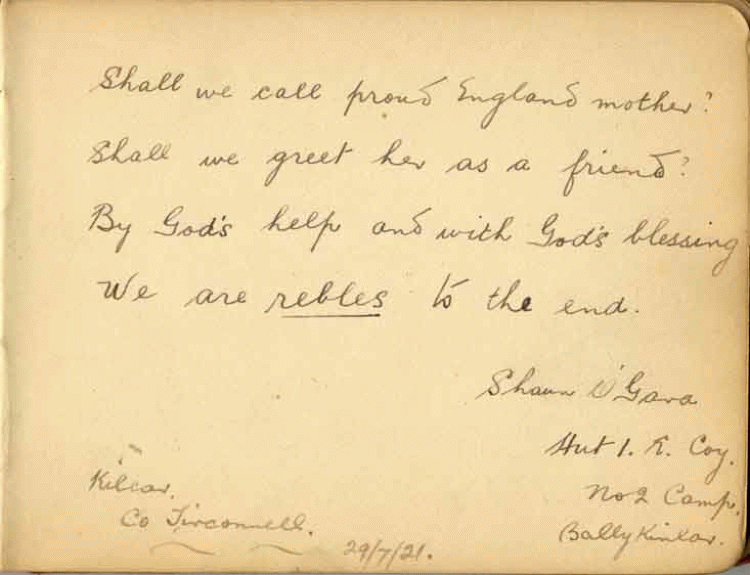 Shall we call proud England mother?
Shall we greet her as a friend?
By God's help and with God's blessing
We are rebles to the end.
Shaun O'Gara
Hut 1. E. Coy.
No 2 Camp.
Ballykinlar.
Kilcar.
Co Tirconnell.
29/7/21.